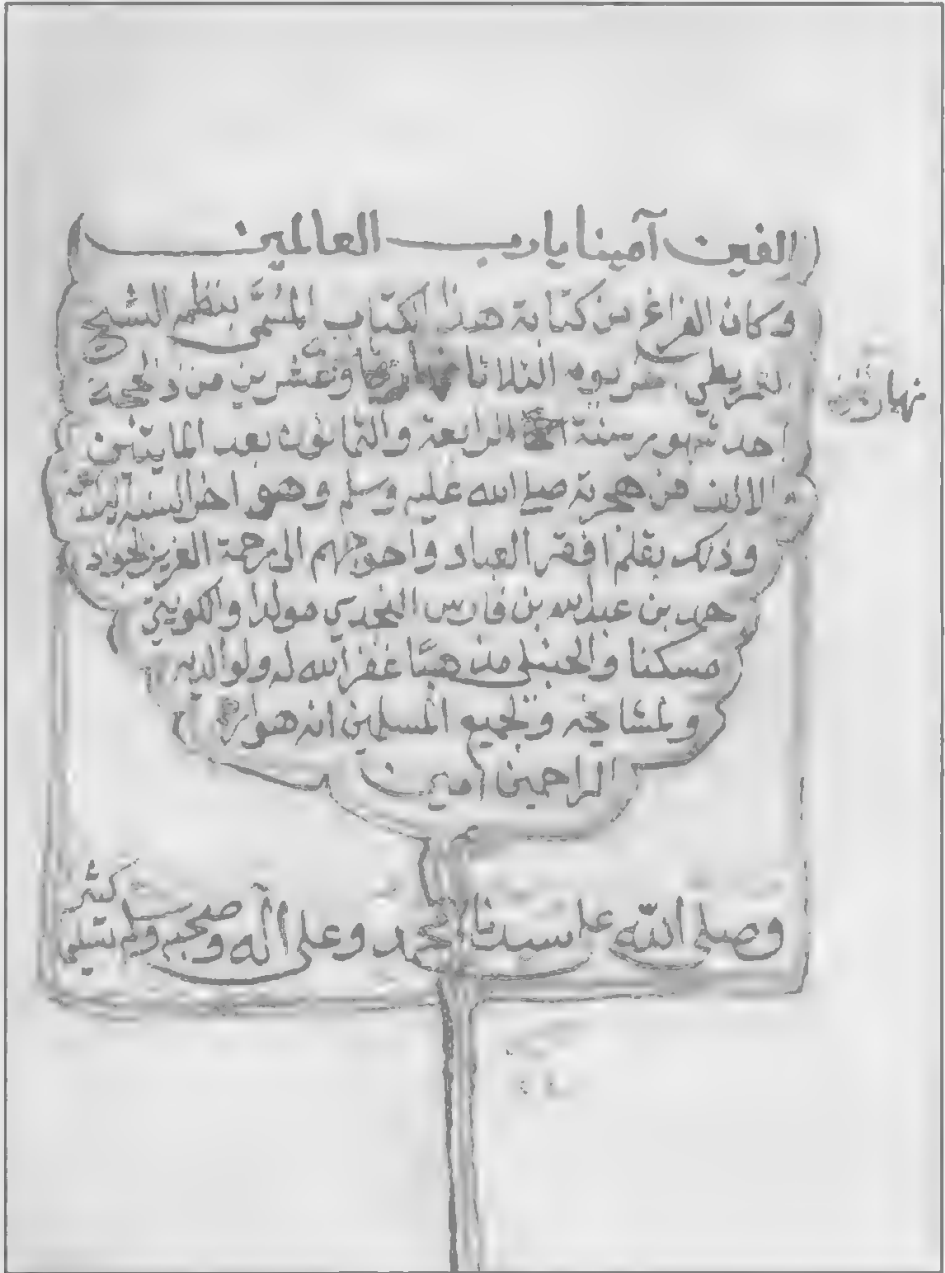 الفين آمينا يا رب العالمين
وكان الفراغ من كتابة هذا الكتاب المسمى بنظم الشيخ
يوم الثلاثا وعشرين من ذالحجة
احد شهور سنة الرابعة والثمانون بعد المايتين
والالف من هجرته صلى الله عليه وسلم وهو اخر السنة
وذلك بقلم افقر العباد واحوجهم الى رحمة العزيز الجواد
حمد بن عبدالله بن فارس النجدي مولدا والكويتي
مسكنا والحنبلي مذهبا غفر الله له ولوالديه
ولمشايخه ولجميع المسلمين انه هو
الراحمين آمين
وصلى الله على سيدنا محمد وعلى آله وصحبه وسلم تسليما كثيرا
نهار